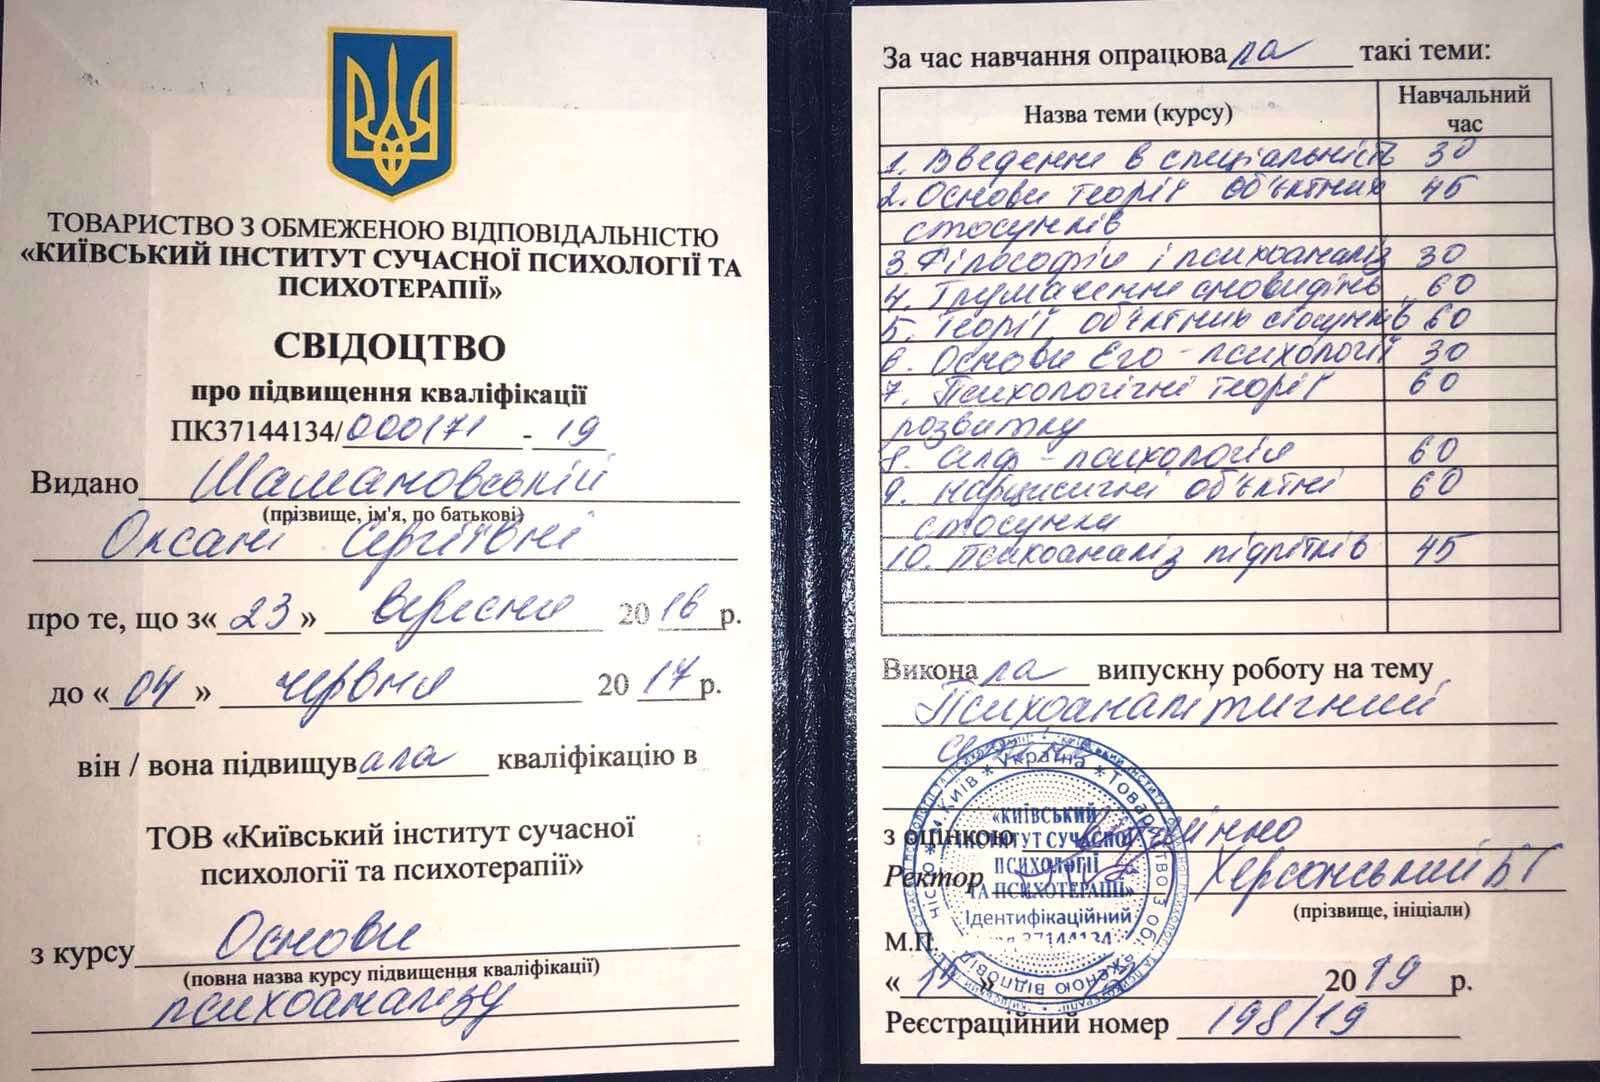 ТОВАРИСТВО З ОБМЕЖЕНОЮ ВІДПОВІДАЛЬНІСТЮ
«КИЇВСЬКИЙ ІНСТИТУТ СУЧАСНОЇ ПСИХОЛОГІЇ ТА
ПСИХОТЕРАПІЇ»
СВІДОЦТВО
про підвищення кваліфікації
ПК37144134/000171 - 19
Видано Шамановській
(прізвище, ім'я, по батькові)
Оксані Сергіївні
про те, що з«23» вересня 2016 р.
до «04» червня 2017р.
він / вона підвищувала кваліфікацію в
ТОВ «Київський інститут сучасної
психології та психотерапії»
з курсу Основи
(повна назва курсу підвищення кваліфікації)
психоаналізу
За час навчання опрацювала такі теми:
Назва теми (курсу) Навчальний час
1. Введення в спеціальність 30
2. Основи теорії об'єктних 45
стосунків
3. Філософія і психоаналіз 30
4. Тлумачення сновидінь 60
5. Теорії об'єктних стосунків 60
6. Основи Его-психології 30
7. Психологічні теорії 60
розвитку
8. Селф-психологія 60
9. Нарцисичні об'єктні 60
стосунки
10. Психоаналіз підлітків 45
Виконала випускну роботу на тему
Психоаналітичний
з оцінкою відмінно
Ректор Херсонський БГ
(прізвище, ініціали)
М.П.
2019 р.
Реєстраційний номер 198/19
Україна * Товариство з обмеженою відповідальністю * м. Київ *
«КИЇВСЬКИЙ
ІНСТИТУТ СУЧАСНОЇ
ПСИХОЛОГІЇ
ТА ПСИХОТЕРАПІЇ»
Ідентифікаційний
37144134